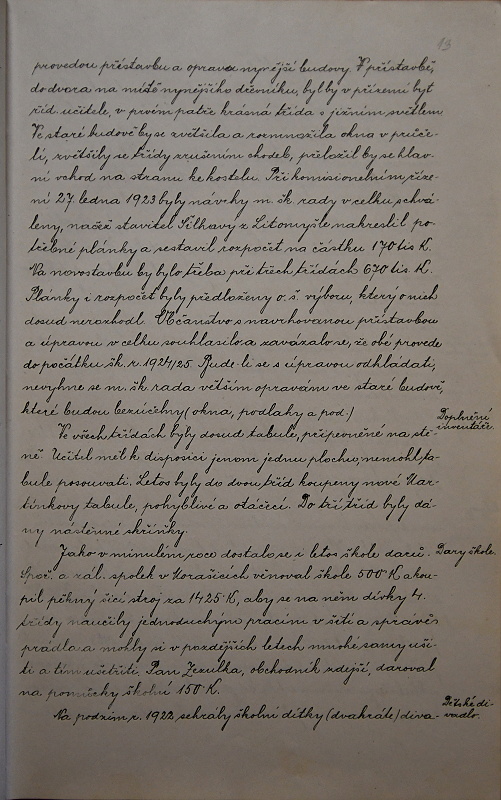 13
provedou přístavbu a opravu nynější budovy. V přístavbě,
do dvora na místě nynějšího dřevníku, byl by v přízemí byt
říd. učitele, v prvém patře krásná třída s jižním světlem.
Ve staré budově by se zvětšila a rozmnožila okna v průče-
lí, zvětšily se třídy zrušením chodeb, přeložil by se hlav-
ní vchod na stranu ke kostelu. Při komisionelním říze-
ní 27. ledna 1923 byly návrhy m. šk. rady v celku schvá-
leny, načež stavitel Šilhavý z Litomyšle nakreslil po-
třebné plánky a sestavil rozpočet na částku 170 tis K.
Na novostavbu by bylo třeba při třech třídách 670 tis K.
Plánky i rozpočet byly předloženy o. š. výboru, který o nich
dosud nerozhodl. Občanstvo s navrhovanou přístavbou
a úpravou v celku souhlasilo a zavázalo se, že obé provede
do počátku šk. r. 1924/25. Bude-li se s úpravou odkládati,
nevyhne se m. šk. rada větším opravám ve staré budově,
které budou bezúčelny (okna, podlahy a pod.)
Doplnění
inventáře.
Ve všech třídách byly dosud tabule, připevněné na stě-
ně. Učitel měl k disposici jenom jednu plochu, nemohl ta-
bule posouvati. Letos byly do dvou tříd koupeny nové Mar-
tínkovy tabule, pohyblivé a otáčecí. Do tří tříd byly dá-
ny nástěnné skříňky.
Jako v minulém roce dostalo se i letos škole darů.
Dary škole.
Spoř. a zál. spolek v Morašicích věnoval škole 500 K a kou-
pil pěkný šicí stroj za 1425 K, aby se na něm dívky 4.
třídy naučily jednoduchým pracím v šití a správě
prádla a mohly si v pozdějších letech mnohé samy uší-
ti a tím ušetřiti. Pan Zezulka, obchodník zdejší, daroval
na pomůcky školní 150 K.
Na podzim r. 1922 sehrály školní dítky (dvakráte) diva-
Dětské di-
vadlo.